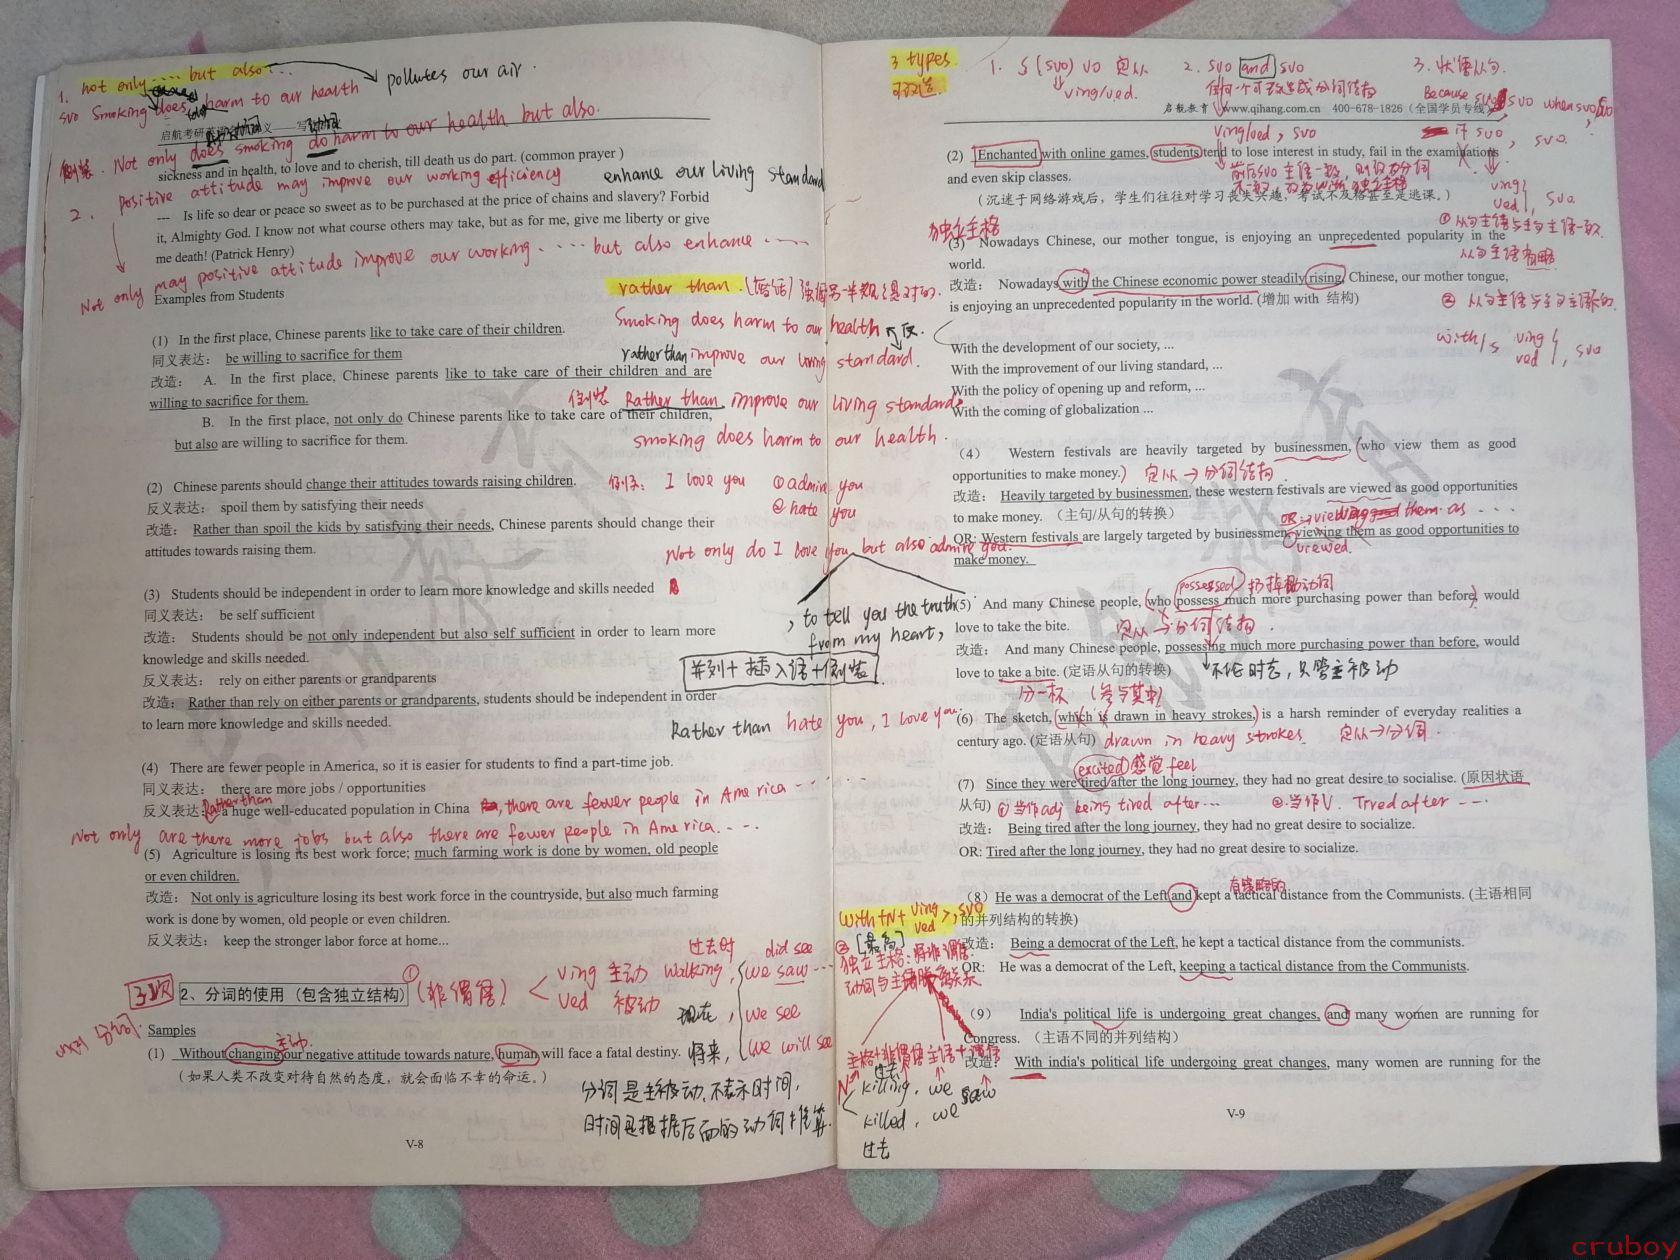 1. not only ..... but also ...
pollutes our air.
svo Smoking does harm to our health
启航考研英语
倒装. Not only does smoking do harm to our health but also.
sickness and in health, to love and to cherish, till death us do part. (common prayer )
2. positive attitude may improve our working efficiency
enhance our living standard
--- Is life so dear or peace so sweet as to be purchased at the price of chains and slavery? Forbid
it, Almighty God. I know not what course others may take, but as for me, give me liberty or give
me death! (Patrick Henry)
Not only may positive attitude improve our working ..... but also enhance .....
Examples from Students
rather than.
Smoking does harm to our health
(1) In the first place, Chinese parents like to take care of their children.
同义表达： be willing to sacrifice for them
rather than improve our living standard.
改造： A. In the first place, Chinese parents like to take care of their children and are
willing to sacrifice for them.
倒装 Rather than improve our living standard,
B. In the first place, not only do Chinese parents like to take care of their children,
but also are willing to sacrifice for them.
smoking does harm to our health.
(2) Chinese parents should change their attitudes towards raising children.
I love you ①admire you
②hate you
反义表达： spoil them by satisfying their needs
改造： Rather than spoil the kids by satisfying their needs, Chinese parents should change their
attitudes towards raising them.
Not only do I love you but also admire you.
(3) Students should be independent in order to learn more knowledge and skills needed
同义表达： be self sufficient
, to tell you the truth
from my heart,
改造： Students should be not only independent but also self sufficient in order to learn more
knowledge and skills needed.
并列+插入语+倒装
反义表达： rely on either parents or grandparents
改造： Rather than rely on either parents or grandparents, students should be independent in order
to learn more knowledge and skills needed.
Rather than hate you, I love you.
(4) There are fewer people in America, so it is easier for students to find a part-time job.
同义表达： there are more jobs / opportunities
反义表达： Rather than a huge well-educated population in China , there are fewer people in America ...
Not only are there more jobs but also there are fewer people in America ....
(5) Agriculture is losing its best work force; much farming work is done by women, old people
or even children.
改造： Not only is agriculture losing its best work force in the countryside, but also much farming
work is done by women, old people or even children.
反义表达： keep the stronger labor force at home...
2、分词的使用（包含独立结构）
①(非谓语) ving 主动 walking,
ved 被动
过去时 did see
we saw ...
现在, we see
将来, we will see
Samples
主动.
(1) Without changing our negative attitude towards nature, human will face a fatal destiny.
（如果人类不改变对待自然的态度，就会面临不幸的命运。）
分词是主被动、不表示时间,
时间是根据后面的动词推算.
V-8
3 types.
1. S (svo) vo 定从
ving/ved.
2. svo and svo
ving/ved, svo
3. 状语从句.
启航教育 www.qihang.com.cn 400-678-1826（全国学员专线）
(2) Enchanted with online games, students tend to lose interest in study, fail in the examinations
and even skip classes.
（沉迷于网络游戏后，学生们往往对学习丧失兴趣，考试不及格甚至是逃课。）
ving
ved , svo
独立主格
(3) Nowadays Chinese, our mother tongue, is enjoying an unprecedented popularity in the
world.
改造： Nowadays with the Chinese economic power steadily rising, Chinese, our mother tongue,
is enjoying an unprecedented popularity in the world. (增加 with 结构)
① 从句主语与主句主语一致.
With the development of our society, ...
With the improvement of our living standard, ...
With the policy of opening up and reform, ...
With the coming of globalization ...
with/s ving
ved , svo
（4） Western festivals are heavily targeted by businessmen, who view them as good
opportunities to make money.
定从 → 分词结构
改造： Heavily targeted by businessmen, these western festivals are viewed as good opportunities
to make money. （主句/从句的转换）
OR: Western festivals are largely targeted by businessmen, viewing them as good opportunities to
make money.
viewed.
possessed
(5) And many Chinese people, who possess much more purchasing power than before, would
love to take the bite.
定从 → 分词结构.
改造： And many Chinese people, possessing much more purchasing power than before, would
love to take a bite. (定语从句的转换)
不论时态, 只管主被动
分一杯 (参与其中)
(6) The sketch, which is drawn in heavy strokes, is a harsh reminder of everyday realities a
century ago. (定语从句)
drawn in heavy strokes. 定从→分词.
excited 感觉 feel
(7) Since they were tired after the long journey, they had no great desire to socialise. (原因状语
从句)
① 当作adj being tired after ... ②.当作V. Tired after ....
改造： Being tired after the long journey, they had no great desire to socialize.
OR: Tired after the long journey, they had no great desire to socialize.
有策略的
（8）He was a democrat of the Left and kept a tactical distance from the Communists. (主语相同
的并列结构的转换)
with + N + ving
ved , svo
改造： Being a democrat of the Left, he kept a tactical distance from the communists.
OR: He was a democrat of the Left, keeping a tactical distance from the Communists.
（9） India's political life is undergoing great changes, and many women are running for
Congress. （主语不同的并列结构）
改造： With india's political life undergoing great changes, many women are running for the
killing, we saw
killed, we
过去
V-9
cruboy